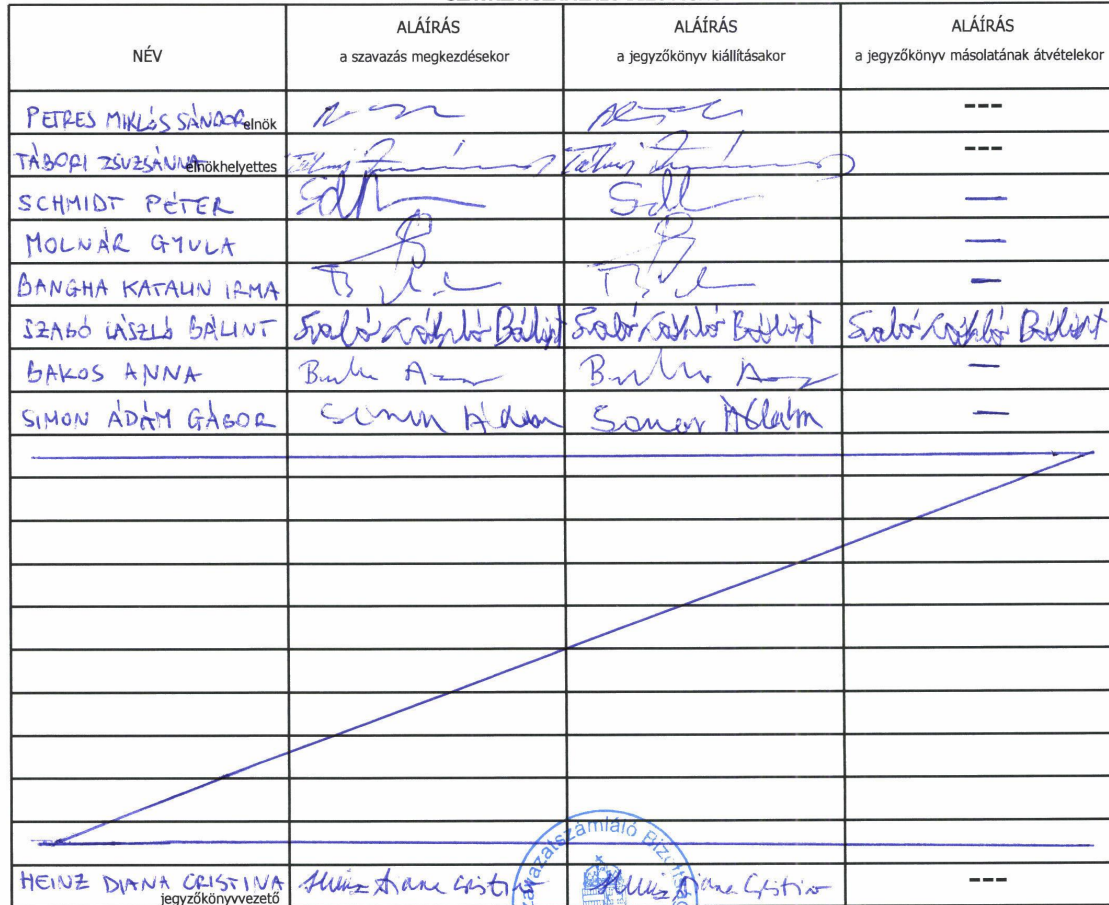 NÉV
ALÁÍRÁS
a szavazás megkezdésekor
ALÁÍRÁS
a jegyzőkönyv kiállításakor
ALÁÍRÁS
a jegyzőkönyv másolatának átvételekor
PETRES MIKLÓS SÁNDOR elnök ---
TÁBORI ZSUZSÁNNA elnökhelyettes ---
SCHMIDT PÉTER —
MOLNÁR GYULA —
BANGHA KATALIN IRMA —
SZABÓ LÁSZLÓ BÁLINT Szabó László Bálint Szabó László Bálint Szabó László Bálint
BAKOS ANNA —
SIMON ÁDÁM GÁBOR Simon Ádám Simon Ádám —
Szavazatszámláló Bizottság
HEINZ DIANA CRISTINA Heinz Diana Cristina Heinz Diana Cristina ---
jegyzőkönyvvezető